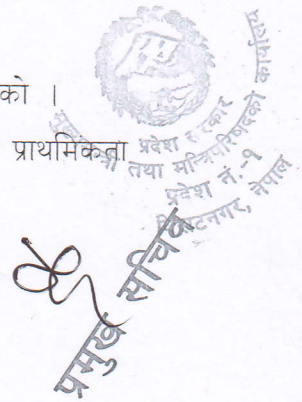 को ।
प्राथमिकता
प्रदेश सरकार
मुख्यमन्त्री तथा मन्त्रिपरिषद्को कार्यालय
प्रदेश नं.-१
विराटनगर, नेपाल
प्रमुख सचिव